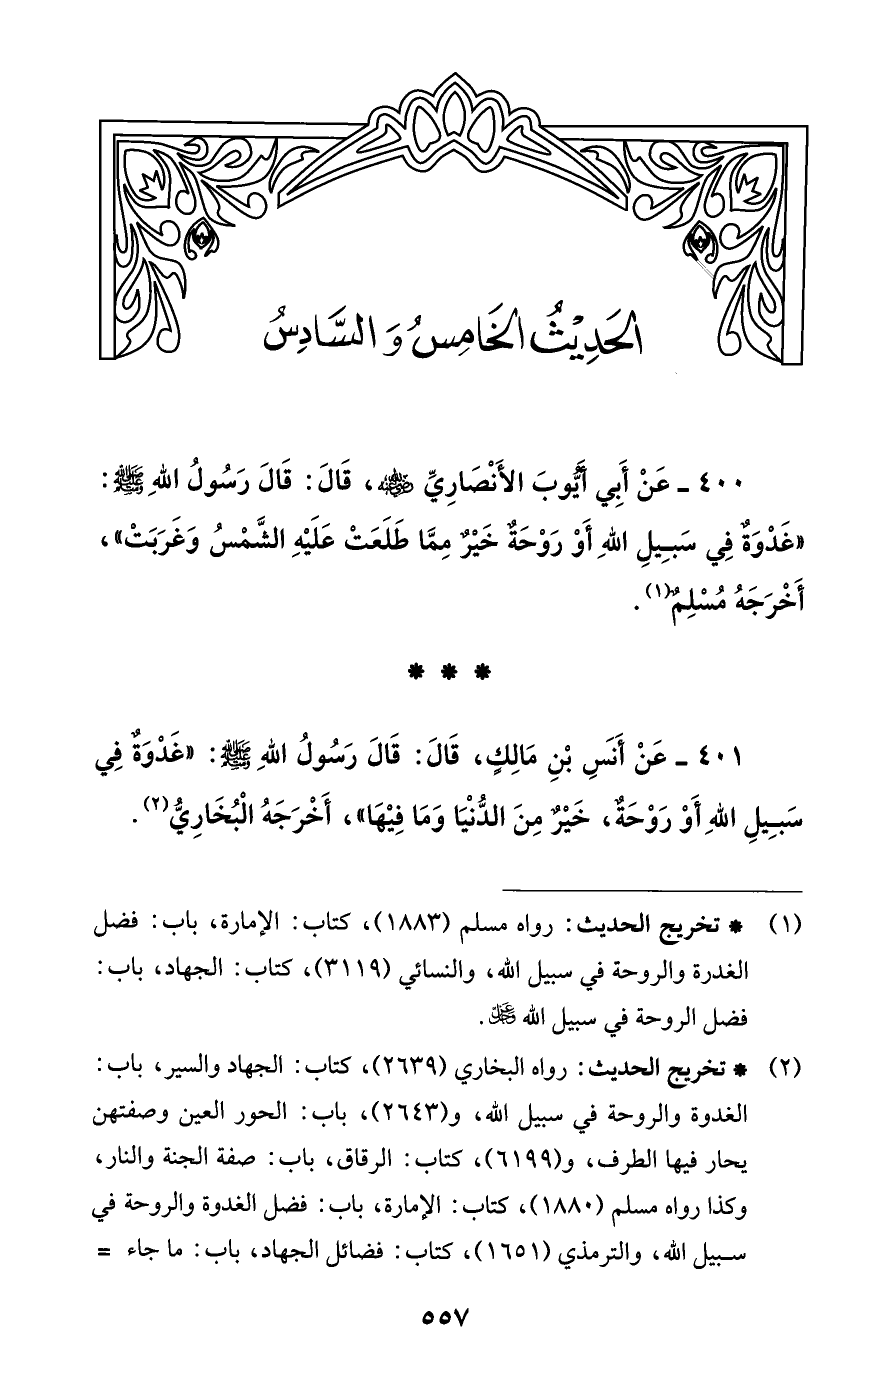 الحَدِيْثُ الخَامِسُ وَ السَّادِسُ
٤٠٠ ـ عَنْ أَبِي أَيُّوبَ الأَنْصَارِيِّ ﷺ، قَالَ: قَالَ رَسُولُ اللهِ ﷺ:
«غَدْوَةٌ فِي سَبِيلِ اللهِ أَوْ رَوْحَةٌ خَيْرٌ مِمَّا طَلَعَتْ عَلَيْهِ الشَّمْسُ وَغَرَبَتْ»،
أَخْرَجَهُ مُسْلِمٌ(١).
* * *
٤٠١ ـ عَنْ أَنَسِ بْنِ مَالِكٍ، قَالَ: قَالَ رَسُولُ اللهِ ﷺ: «غَدْوَةٌ فِي
سَبِيلِ اللهِ أَوْ رَوْحَةٌ، خَيْرٌ مِنَ الدُّنْيَا وَمَا فِيْهَا»، أَخْرَجَهُ الْبُخَارِيُّ(٢).
(١) * تخريج الحديث: رواه مسلم (١٨٨٣)، كتاب: الإمارة، باب: فضل
الغدرة والروحة في سبيل الله، والنسائي (٣١١٩)، كتاب: الجهاد، باب:
فضل الروحة في سبيل الله ﷻ.
(٢) * تخريج الحديث: رواه البخاري (٢٦٣٩)، كتاب: الجهاد والسير، باب:
الغدوة والروحة في سبيل الله، و(٢٦٤٣)، باب: الحور العين وصفتهن
يحار فيها الطرف، و(٦١٩٩)، كتاب: الرقاق، باب: صفة الجنة والنار،
وكذا رواه مسلم (١٨٨٠)، كتاب: الإمارة، باب: فضل الغدوة والروحة في
سبيل الله، والترمذي (١٦٥١)، كتاب: فضائل الجهاد، باب: ما جاء =
٥٥٧